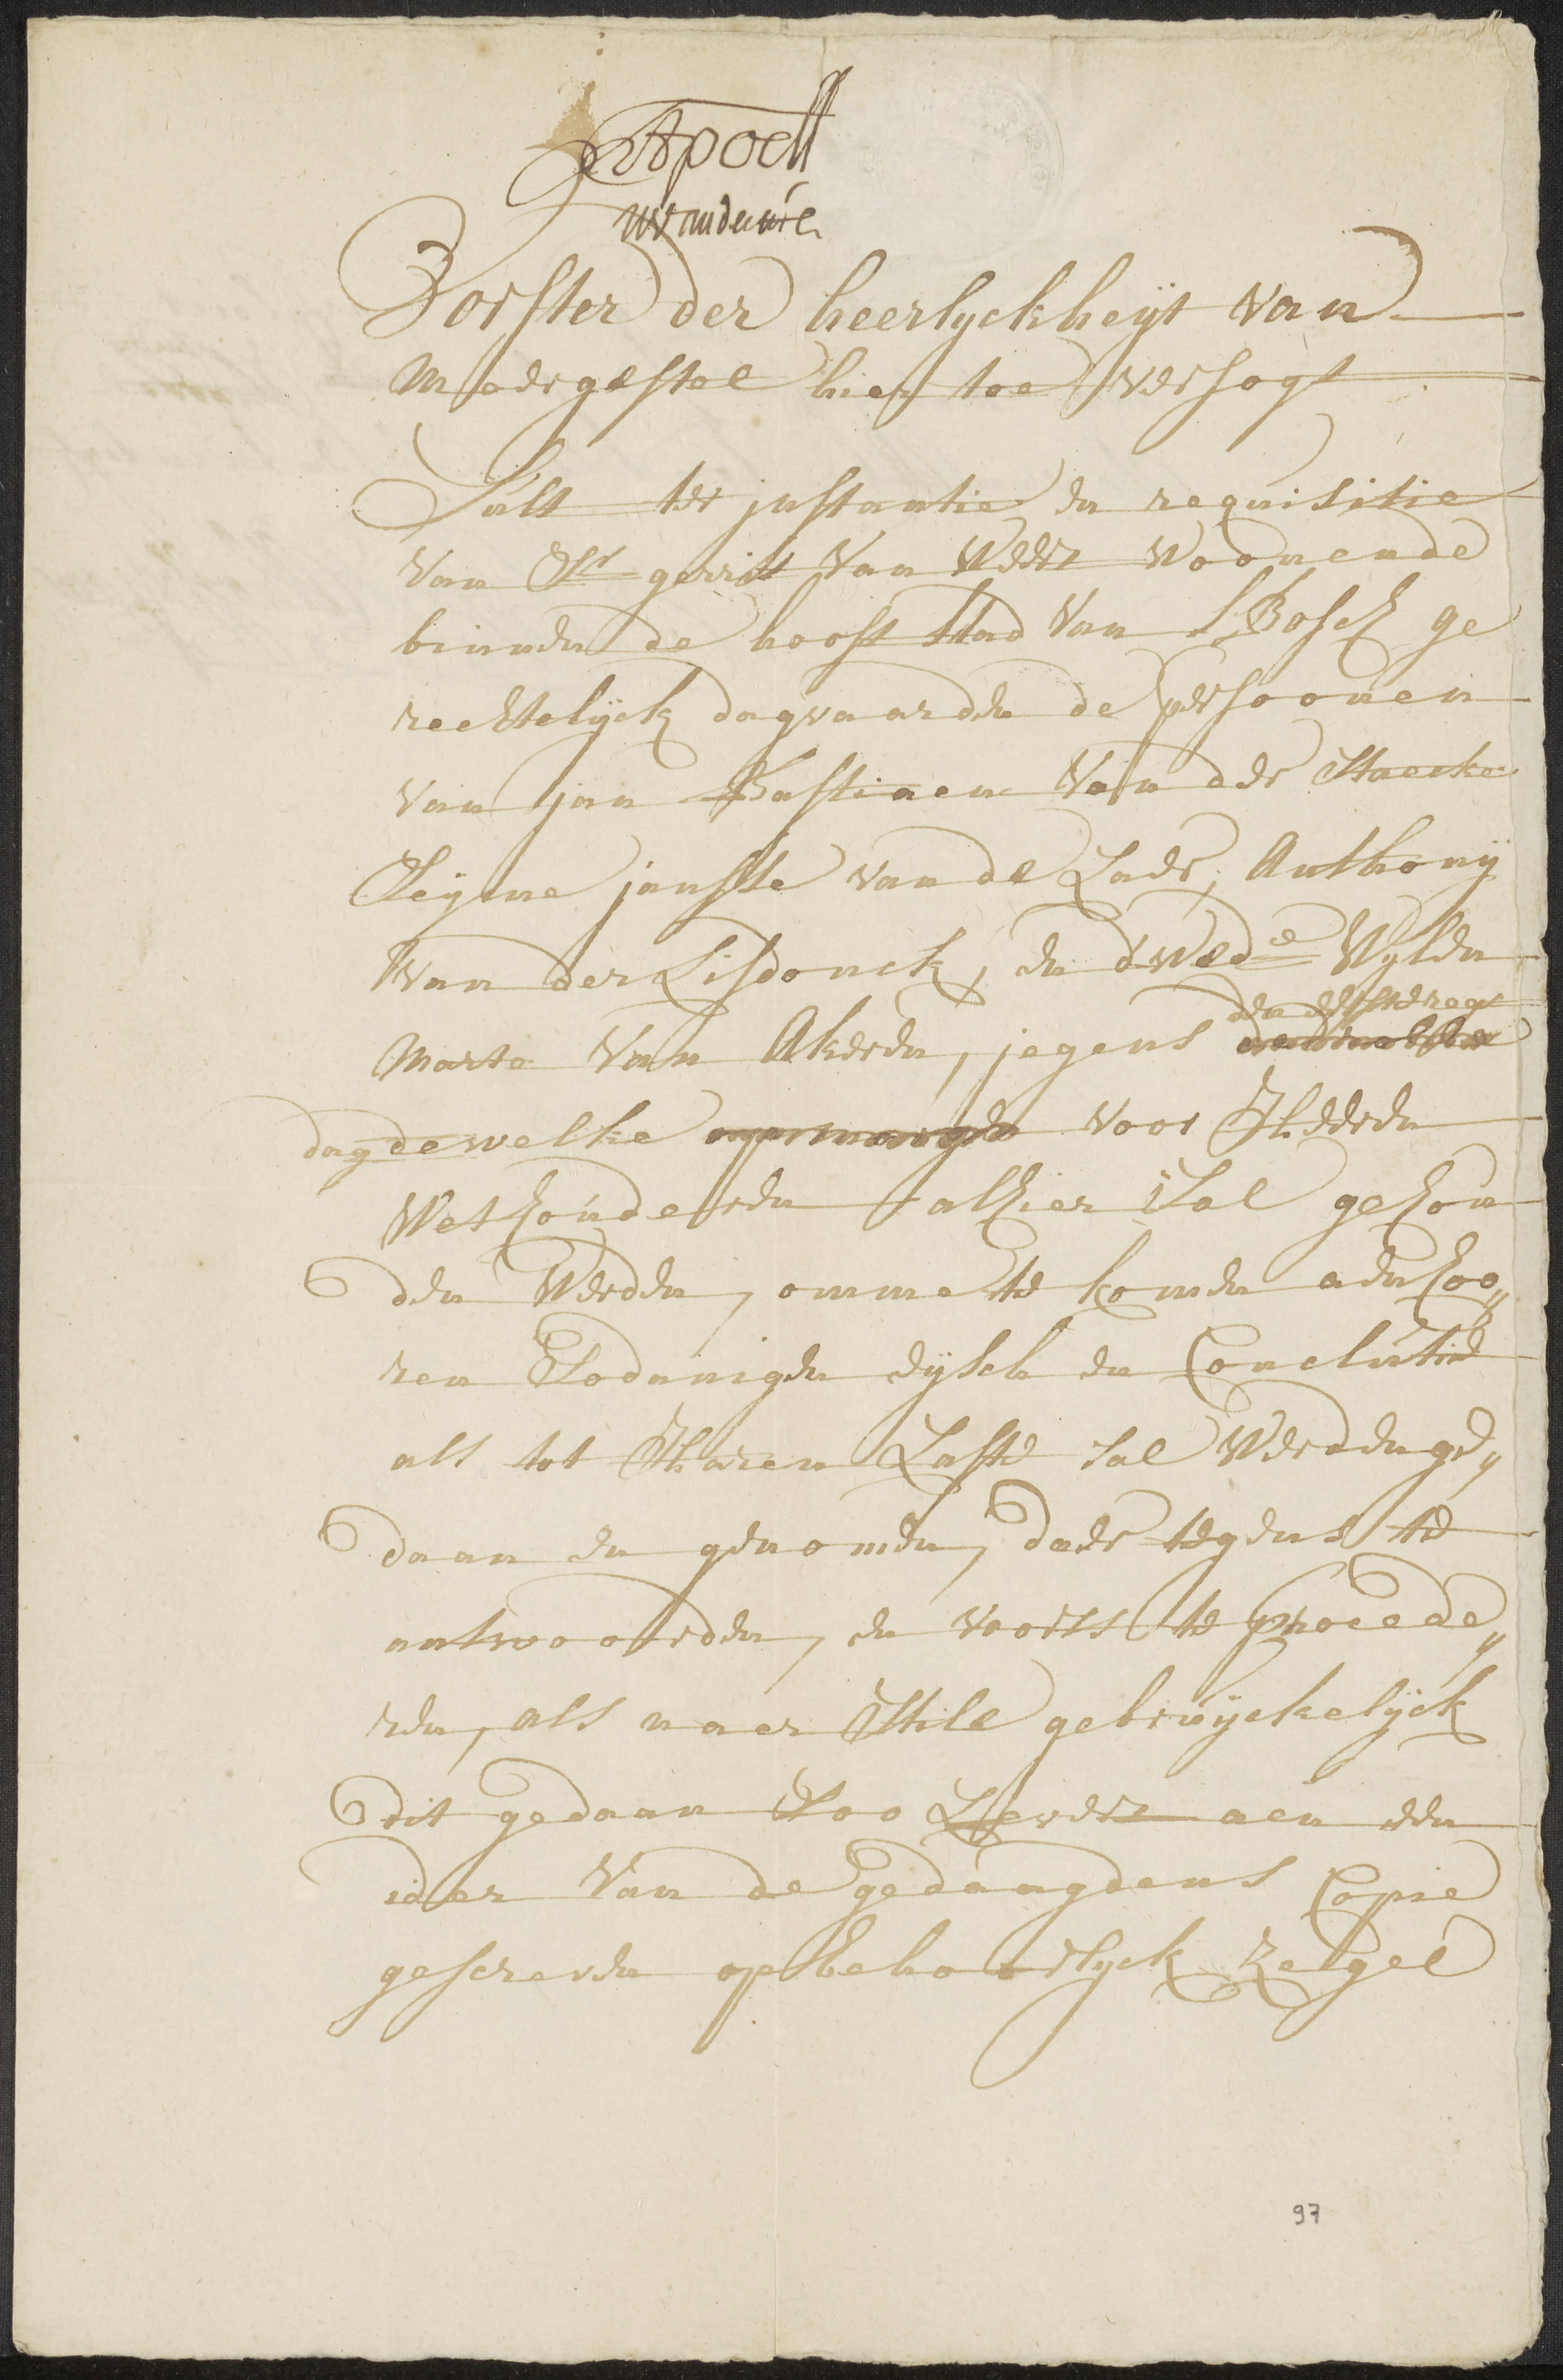 Vorster der heerlyckheÿt van
Moergestel hier toe versogt
Sult ter instantie en requisitie
van Sr gerrit van Weert woonende
binnen de hooft stad van S Bosch ge
rechtelÿck dagvaarden de persoonen
van jan Bastiaen van der Staecke
Seÿme jansse van de Laer, Anthonÿ
van der Lisdonck, en d wede Wylen
Marte van Akeren, jegens den eersten regt
dag dewelke voor Heeren
Wethouderen alhier sal gehou
den werden, omme te komen aenhoo„
ren sodanigen eÿsch en Conclusie
als tot Haren Laste sal werden ge„
daan en genomen, daer tegens te
antwoorden, en voorts te procede„
ren, als naer Stile gebruÿckelÿck
dit gedaan soo Levert aen een
ider van de gedaagdens Copie
geschreven op behoorlyck zeegel
97